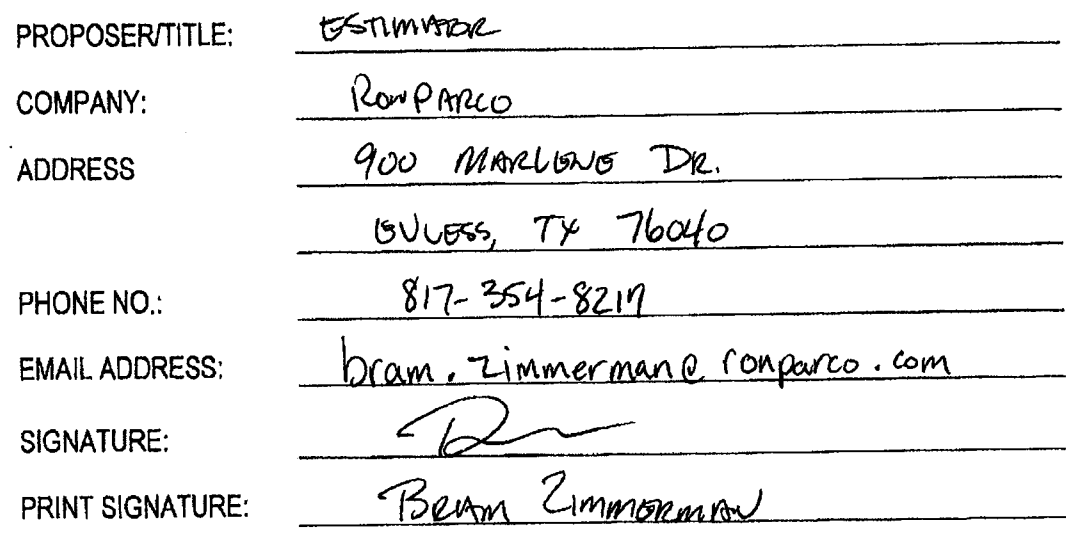 PROPOSER/TITLE: ESTIMATOR
COMPANY: RONPARCO
ADDRESS 900 MARLENE DR.
EULESS, TX 76040
PHONE NO.: 817-354-8217
EMAIL ADDRESS: bram.zimmerman@ronparco.com
SIGNATURE:
PRINT SIGNATURE: BRAM ZIMMERMAN